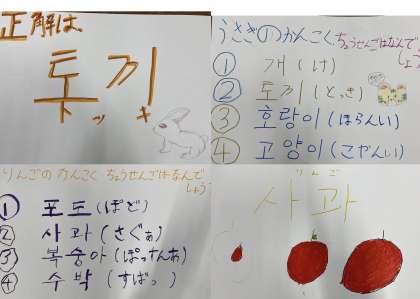 正解は
토끼
トッキ
うさぎのかんこくちょうせんごはなんでしょう
① 개 (け)
② 토끼 (とっき)
③ 호랑이 (ほらんい)
④ 고양이 (こやんい)
りんごのかんこくちょうせんごはなんでしょう
① 포도 (ぽど)
② 사과 (さぐぁ)
③ 복숭아 (ぽっさんあ)
④ 수박 (すばっ)
りんご
사과